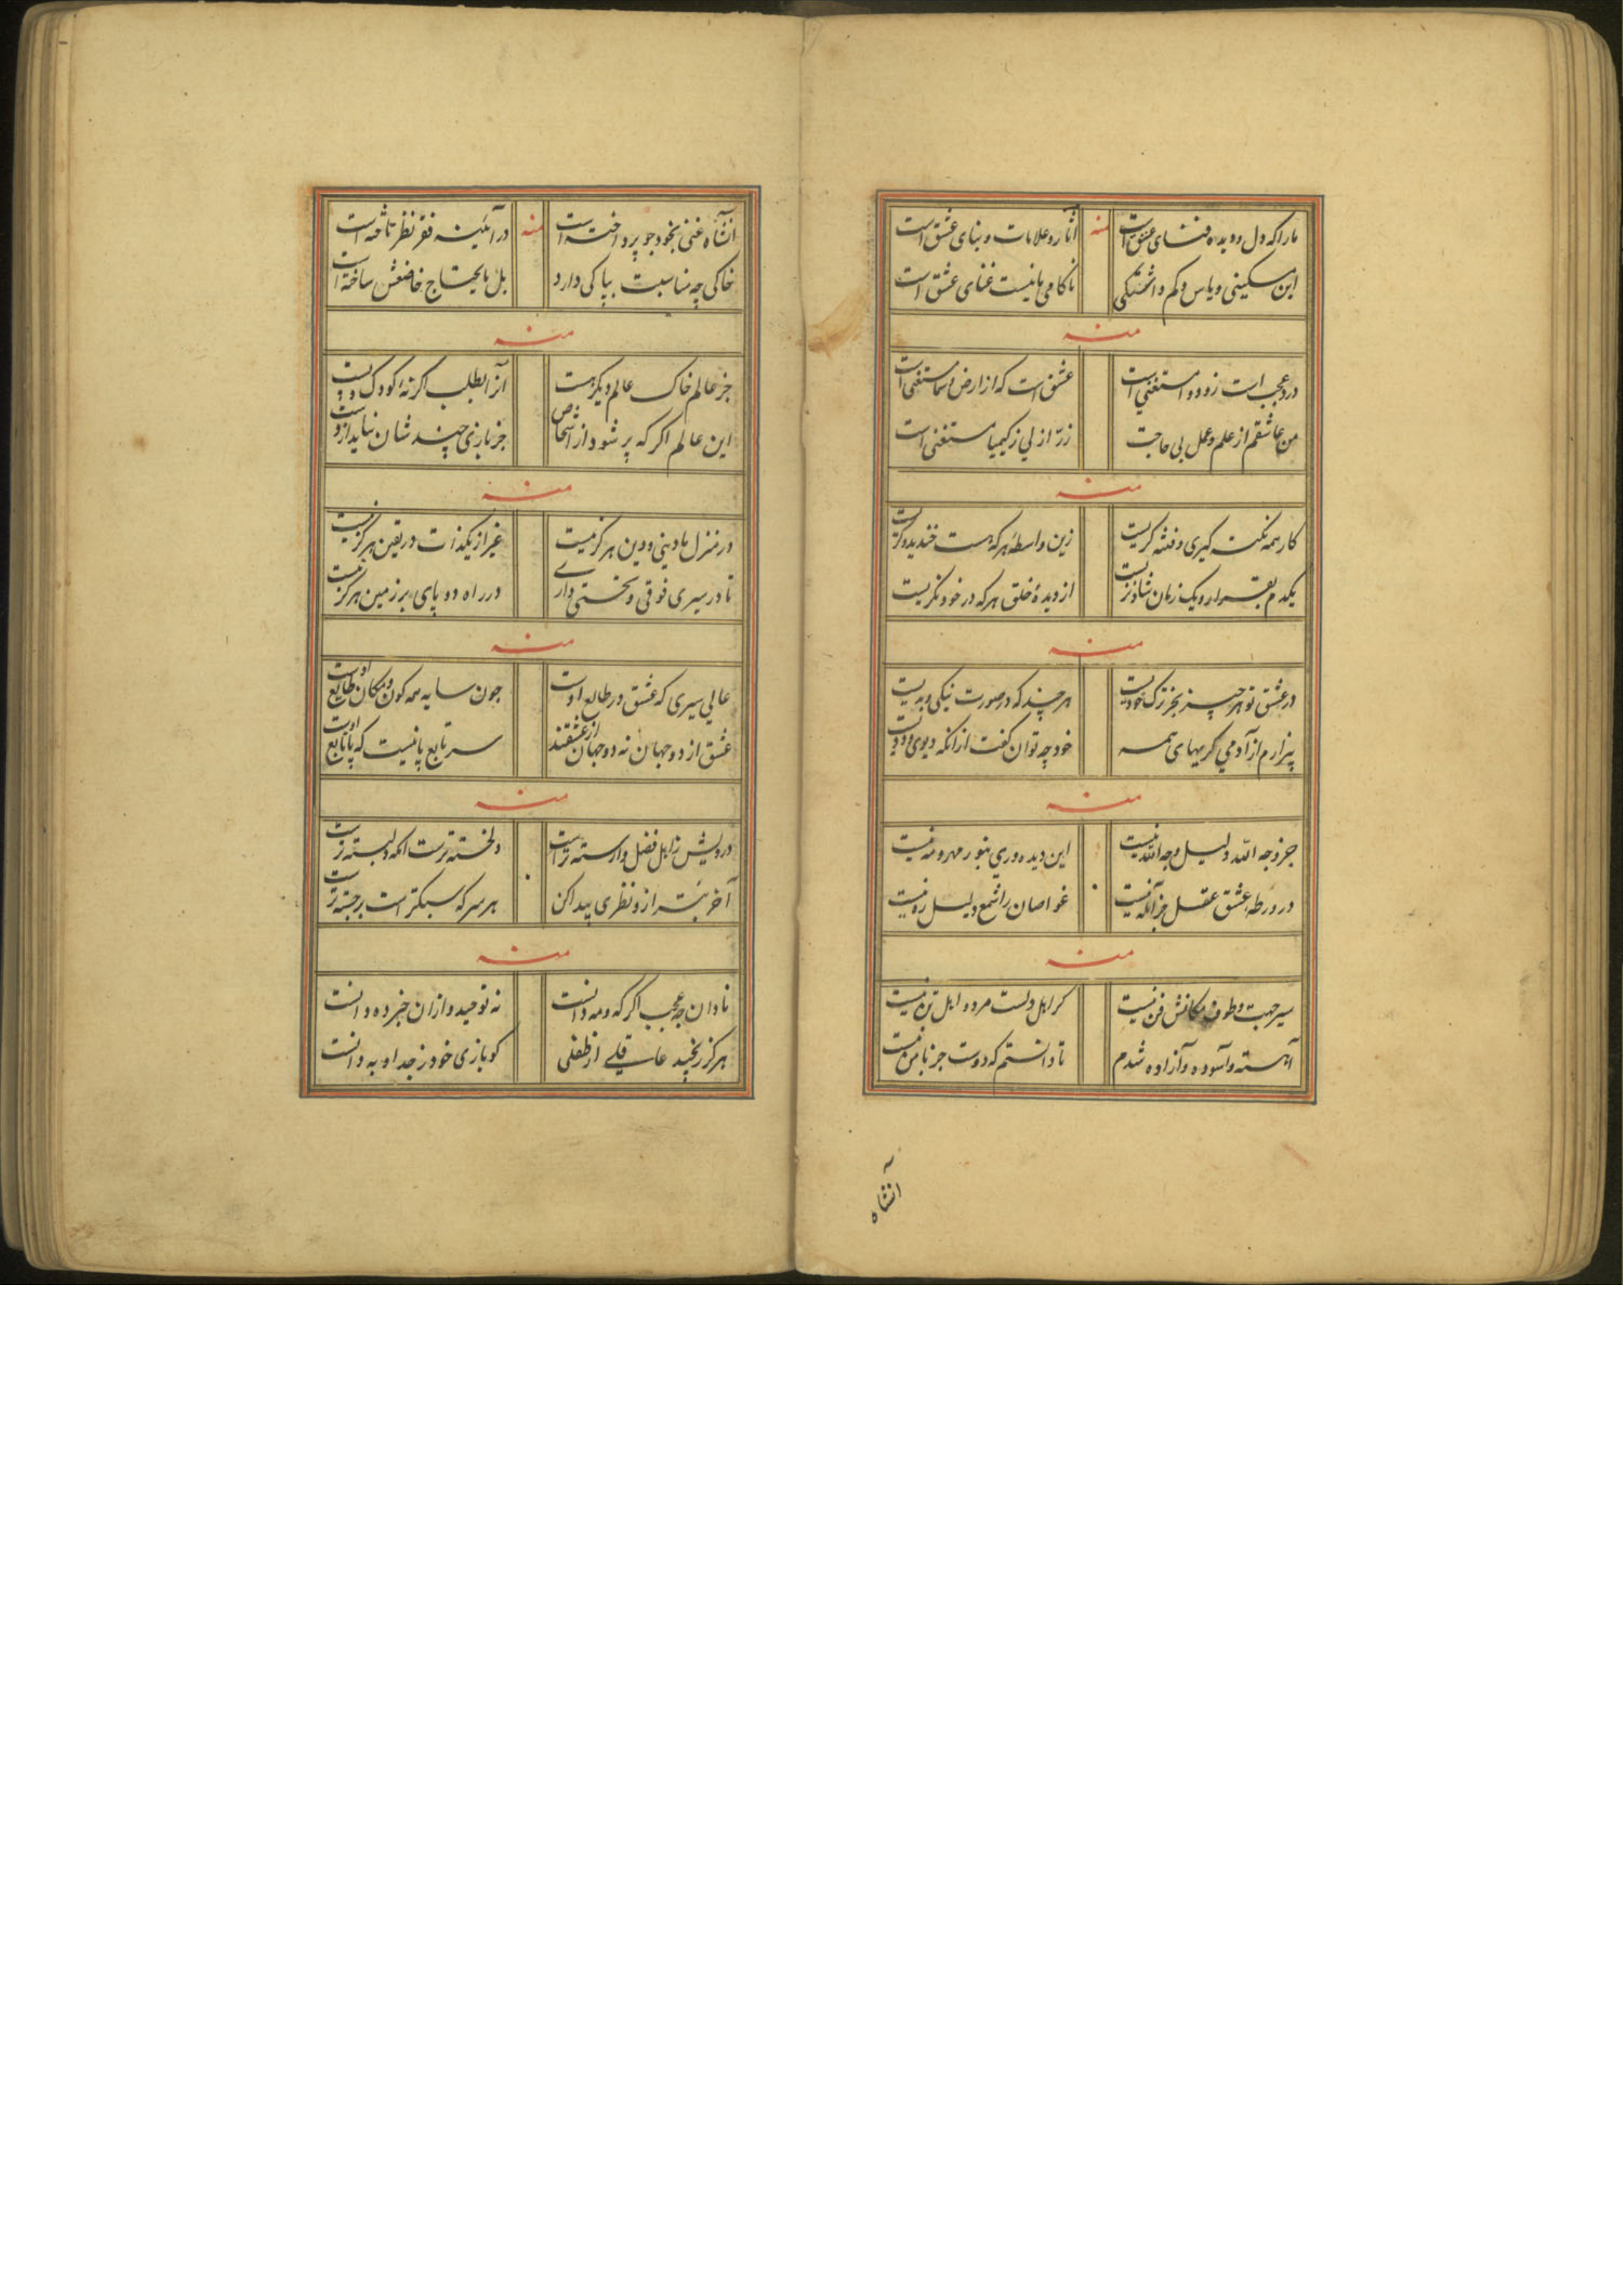 ما را که دل و دیده فنای عشق است منه آثار و علامات و بنای عشق است
این مسکینی و یاس و کم ناکامی ما نیست غنای عشق است
منه
درد عجب است زود و مستغنی است عشق است که از ارض و سما مستغنی است
من عاشقم از علم و عمل بی حاجت زرّ ازلی ز کیمیا مستغنی است
منه
کار همه نکته گیری و فتنه گریست زین واسطه هر که هست خندید و گریست
یکدم بقرار و یک زمان شاد نزیست از دیدهٔ خلق هر که در خود نگریست
منه
در عشق تو هر چیز بجز ترک خودیست هر چند که در صورت نیکی و بدیست
بیزارم از آدمی کریهای همه خود چه توان گفت از آنکه دیوی و ددیست
منه
جز وجه الله دلیل وجه الله نیست این دیده وری بنور مهر و مه نیست
در ورطهٔ عشق عقل مرد آگه نیست غواصان را شمع دلیل ره نیست
منه
سیر جهت و طوف مکانش فن نیست کر اهل دلست مرده اهل تن نیست
آهسته و آسوده و آزاده شدم تا دانستم که دوست جز با من نیست
آنشاه
آنشاه غنی بخود چو پرداخته است منه در آئینه فقر نظر تاخته است
خاکی چه مناسبت بپاکی دارد بل مایحتاج خاضعش ساخته است
منه
جز عالم خاک عالم دیگر هست آنرا بطلب اگر نهٔ کودک و پست
این عالم اگر که پر شود از اشخاص جز بازی چند شان نیاید از دست
منه
در منزل ما دینی و دین هرگز نیست غیر از یکذات در یقین هرگز نیست
تا در سیری فوقی و تحتی داری در راه دو پای بر زمین هرگز نیست
منه
عالی سیری که عشق در طالع اوست چون سایه همه کون و مکان طایع اوست
عشق از دو جهان نه دو جهان از عشقند سر تابع پا نیست که پا تابع اوست
منه
درویش ز اهل فضل وارسته تر است دلخسته ترست آنکه دلبسته ترست
آخر بتر از و نظری پیدا کن هر سر که سبکتر است برجسته ترست
منه
نادان چه عجب اگر که و مه دانست نه توحید و از آن خبر ده دانست
هرگز رنجید عاقلی از طفلی کو بازی خود ز جد او به دانست